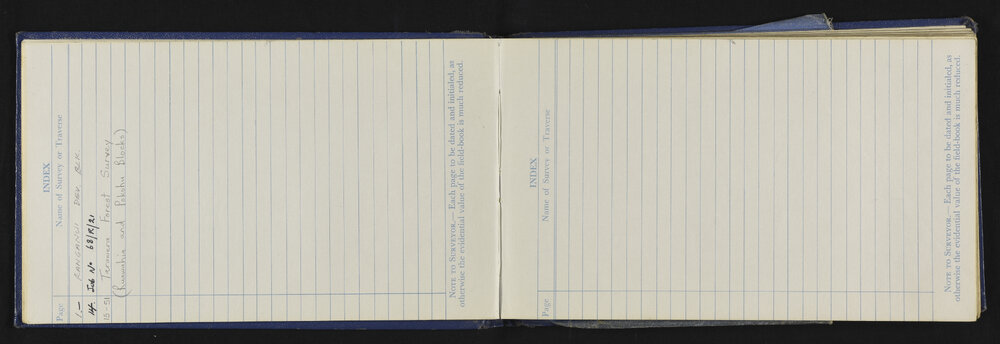 INDEX
Page Name of Survey or Traverse
1 - RANGANUI DEV. BLK.
14. Job No 68/R/21
15-51 Tarawera Forest Survey
and Pokohu Blocks)
NOTE TO SURVEYOR.— Each page to be dated and initialed, as
otherwise the evidential value of the field-book is much reduced.
INDEX
Page Name of Survey or Traverse
NOTE TO SURVEYOR.— Each page to be dated and initialed, as
otherwise the evidential value of the field-book is much reduced.